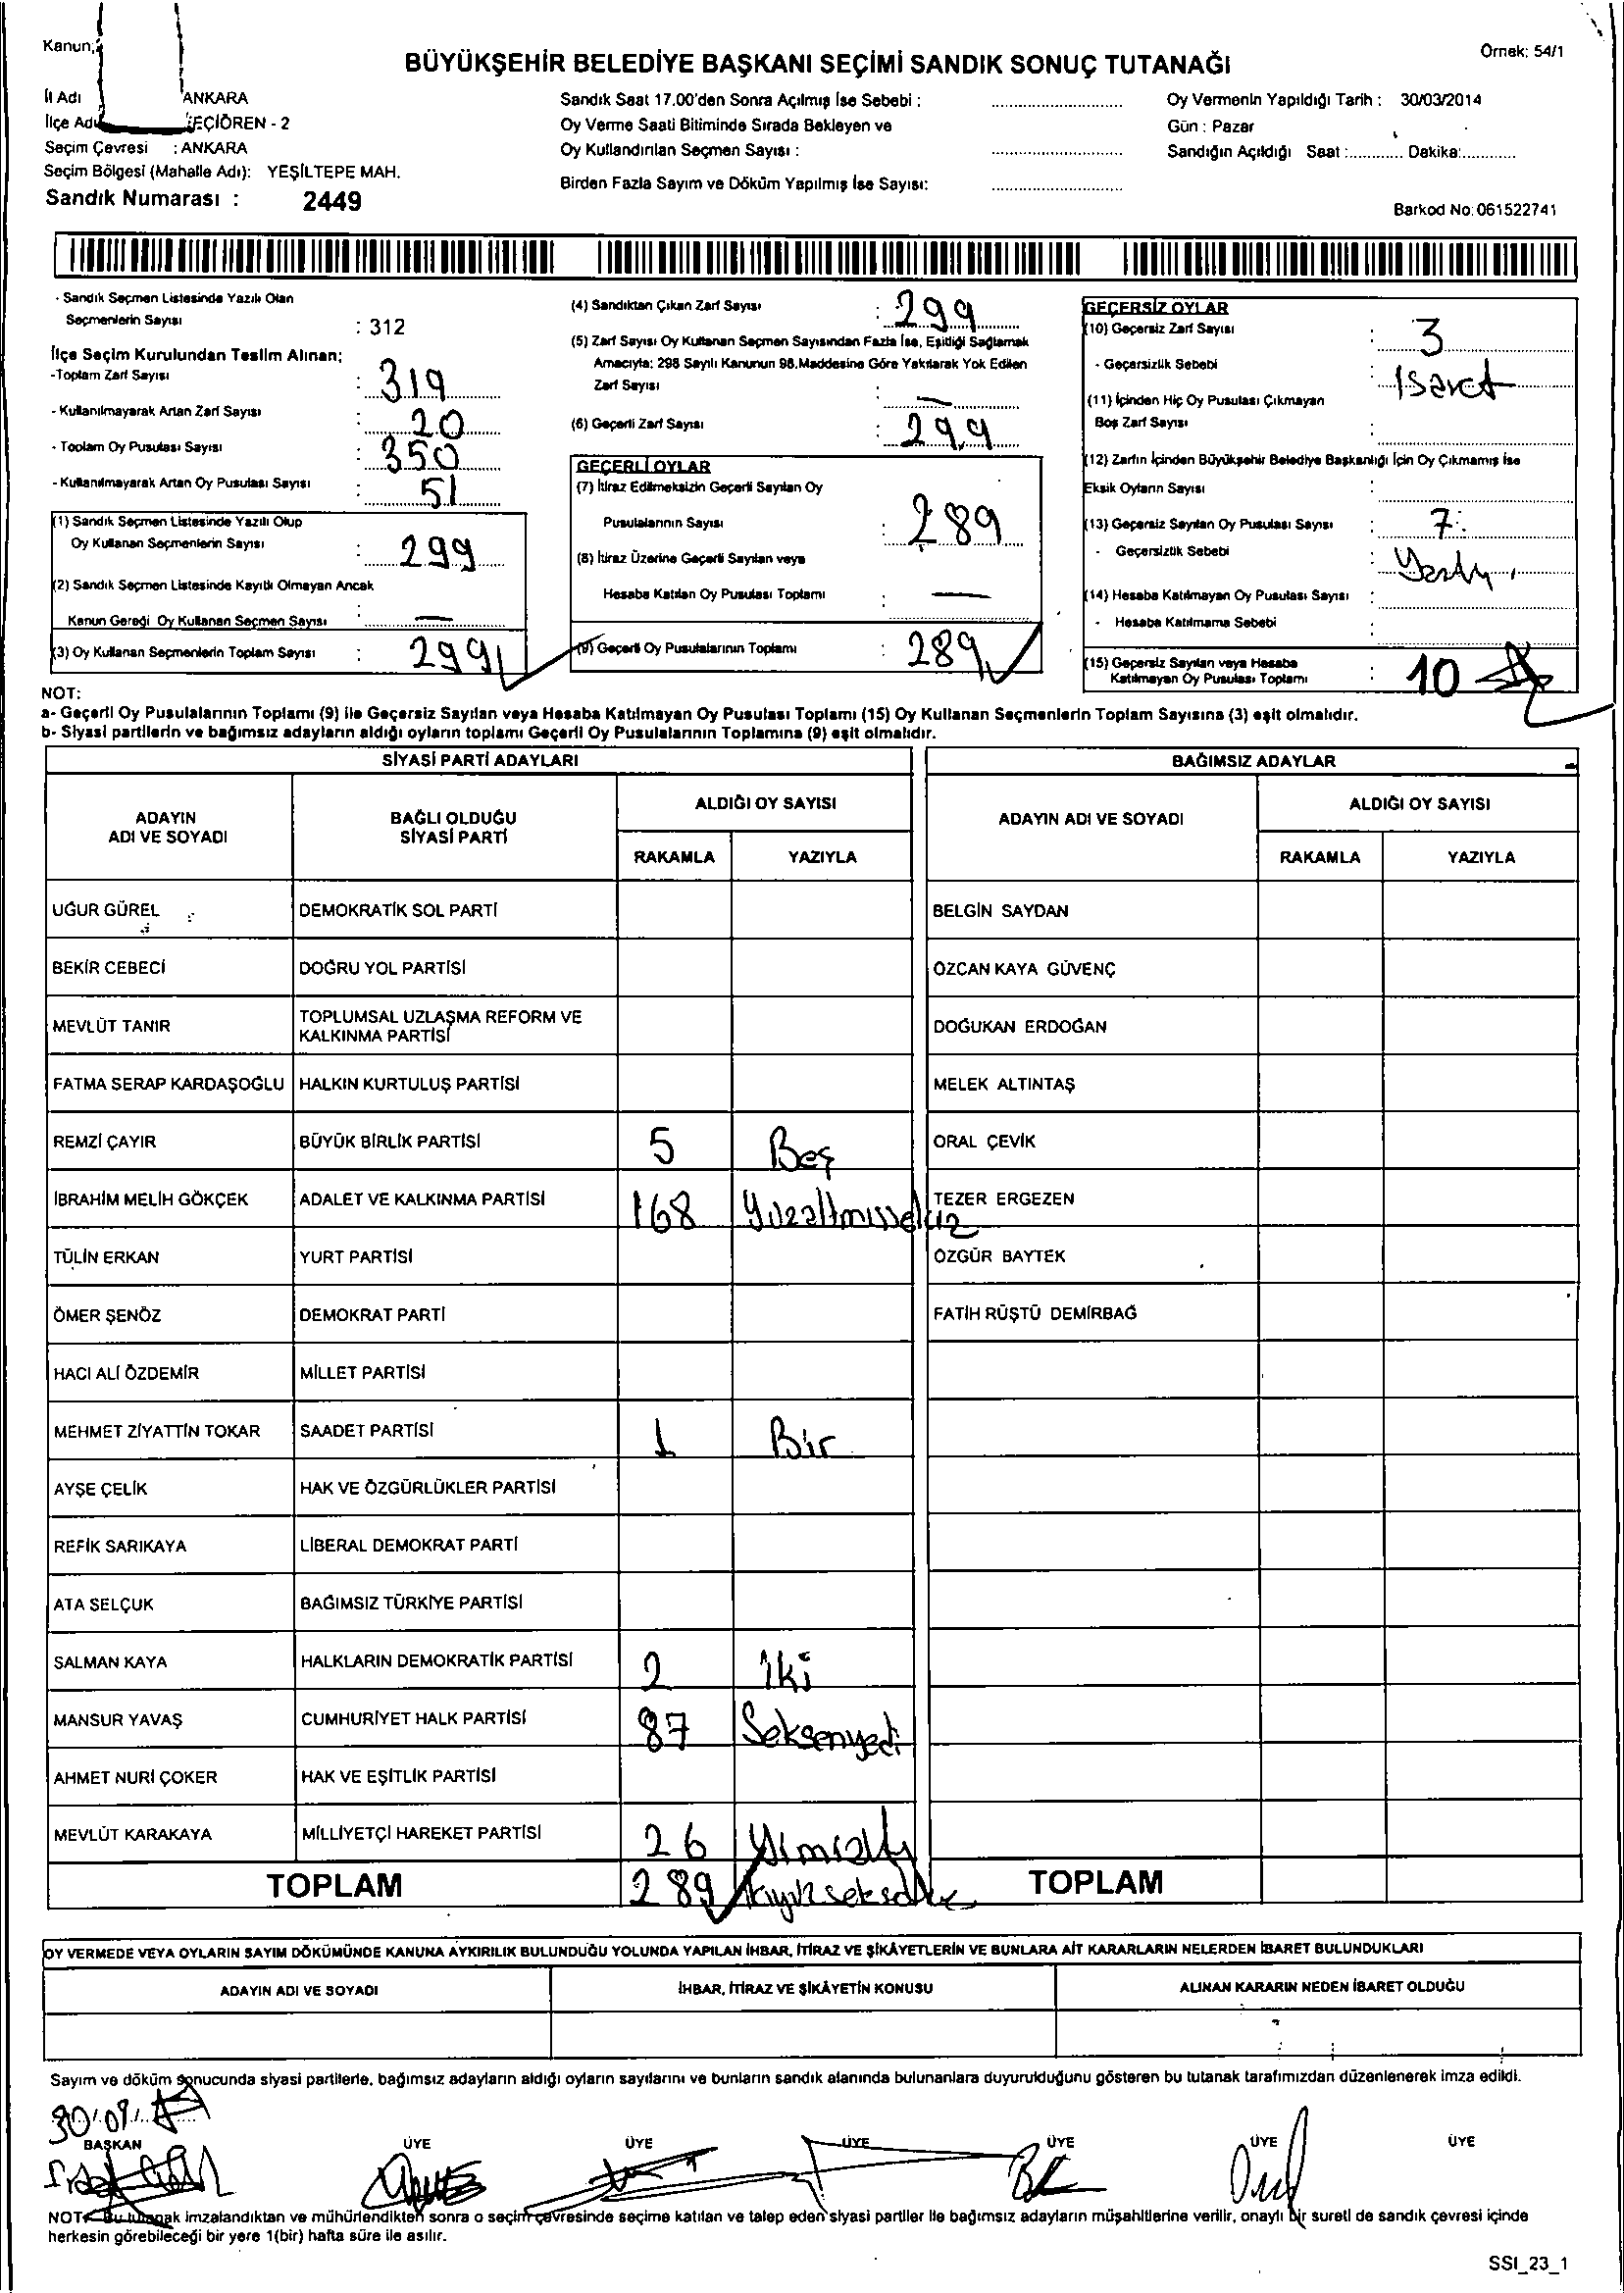 Kanun:
BÜYÜKŞEHİR BELEDİYE BAŞKANI SEÇİMİ SANDIK SONUÇ TUTANAĞI
Örnek: 54/1
İl Adı ANKARA
İlçe Adı KEÇİÖREN - 2
Seçim Çevresi : ANKARA
Seçim Bölgesi (Mahalle Adı): YEŞİLTEPE MAH.
Sandık Numarası : 2449
Sandık Saat 17.00'den Sonra Açılmış İse Sebebi :
Oy Verme Saati Bitiminde Sırada Bekleyen ve
Oy Kullandırılan Seçmen Sayısı :
Birden Fazla Sayım ve Döküm Yapılmış İse Sayısı:
Oy Vermenin Yapıldığı Tarih : 30/03/2014
Gün : Pazar
Sandığın Açıldığı Saat :............ Dakika:............
Barkod No: 061522741
- Sandık Seçmen Listesinde Yazılı Olan
Seçmenlerin Sayısı : 312
İlçe Seçim Kurulundan Teslim Alınan;
-Toplam Zarf Sayısı : 319
- Kullanılmayarak Artan Zarf Sayısı : 20
- Toplam Oy Pusulası Sayısı : 350
- Kullanılmayarak Artan Oy Pusulası Sayısı : 51
(1) Sandık Seçmen Listesinde Yazılı Olup
Oy Kullanan Seçmenlerin Sayısı : 299
(2) Sandık Seçmen Listesinde Kayıtlı Olmayan Ancak
Kanun Gereği Oy Kullanan Seçmen Sayısı : —
(3) Oy Kullanan Seçmenlerin Toplam Sayısı : 299
(4) Sandıktan Çıkan Zarf Sayısı : 299
(5) Zarf Sayısı Oy Kullanan Seçmen Sayısından Fazla İse, Eşitliği Sağlamak
Amacıyla; 298 Sayılı Kanunun 98.Maddesine Göre Yakılarak Yok Edilen
Zarf Sayısı : —
(6) Geçerli Zarf Sayısı : 299
GEÇERLİ OYLAR
(7) İtiraz Edilmeksizin Geçerli Sayılan Oy
Pusulalarının Sayısı : 289
(8) İtiraz Üzerine Geçerli Sayılan veya
Hesaba Katılan Oy Pusulası Toplamı : —
(9) Geçerli Oy Pusulalarının Toplamı : 289
GEÇERSİZ OYLAR
(10) Geçersiz Zarf Sayısı : 3
- Geçersizlik Sebebi : İşaret
(11) İçinden Hiç Oy Pusulası Çıkmayan
Boş Zarf Sayısı :
(12) Zarfın İçinden Büyükşehir Belediye Başkanlığı İçin Oy Çıkmamış İse
Eksik Oyların Sayısı :
(13) Geçersiz Sayılan Oy Pusulası Sayısı : 7
- Geçersizlik Sebebi :
(14) Hesaba Katılmayan Oy Pusulası Sayısı :
- Hesaba Katılmama Sebebi :
(15) Geçersiz Sayılan veya Hesaba
Katılmayan Oy Pusulası Toplamı : 10
NOT:
a- Geçerli Oy Pusulalarının Toplamı (9) ile Geçersiz Sayılan veya Hesaba Katılmayan Oy Pusulası Toplamı (15) Oy Kullanan Seçmenlerin Toplam Sayısına (3) eşit olmalıdır.
b- Siyasi partilerin ve bağımsız adayların aldığı oyların toplamı Geçerli Oy Pusulalarının Toplamına (9) eşit olmalıdır.
SİYASİ PARTİ ADAYLARI
BAĞIMSIZ ADAYLAR
ADAYIN
ADI VE SOYADI
BAĞLI OLDUĞU
SİYASİ PARTİ
ALDIĞI OY SAYISI
RAKAMLA YAZIYLA
ADAYIN ADI VE SOYADI
ALDIĞI OY SAYISI
RAKAMLA YAZIYLA
UĞUR GÜREL DEMOKRATİK SOL PARTİ BELGİN SAYDAN
BEKİR CEBECİ DOĞRU YOL PARTİSİ ÖZCAN KAYA GÜVENÇ
MEVLÜT TANIR TOPLUMSAL UZLAŞMA REFORM VE
KALKINMA PARTİSİ DOĞUKAN ERDOĞAN
FATMA SERAP KARDAŞOĞLU HALKIN KURTULUŞ PARTİSİ MELEK ALTINTAŞ
REMZİ ÇAYIR BÜYÜK BİRLİK PARTİSİ 5 Beş ORAL ÇEVİK
İBRAHİM MELİH GÖKÇEK ADALET VE KALKINMA PARTİSİ 168 Yüzaltmışsekiz TEZER ERGEZEN
TÜLİN ERKAN YURT PARTİSİ ÖZGÜR BAYTEK
ÖMER ŞENÖZ DEMOKRAT PARTİ FATİH RÜŞTÜ DEMİRBAĞ
HACI ALİ ÖZDEMİR MİLLET PARTİSİ
MEHMET ZİYATTİN TOKAR SAADET PARTİSİ 1 Bir
AYŞE ÇELİK HAK VE ÖZGÜRLÜKLER PARTİSİ
REFİK SARIKAYA LİBERAL DEMOKRAT PARTİ
ATA SELÇUK BAĞIMSIZ TÜRKİYE PARTİSİ
SALMAN KAYA HALKLARIN DEMOKRATİK PARTİSİ 2 İki
MANSUR YAVAŞ CUMHURİYET HALK PARTİSİ 87 Seksenyedi
AHMET NURİ ÇOKER HAK VE EŞİTLİK PARTİSİ
MEVLÜT KARAKAYA MİLLİYETÇİ HAREKET PARTİSİ 26 Yirmialtı
TOPLAM 289 TOPLAM
OY VERMEDE VEYA OYLARIN SAYIM DÖKÜMÜNDE KANUNA AYKIRILIK BULUNDUĞU YOLUNDA YAPILAN İHBAR, İTİRAZ VE ŞİKÂYETLERİN VE BUNLARA AİT KARARLARIN NELERDEN İBARET BULUNDUKLARI
ADAYIN ADI VE SOYADI İHBAR, İTİRAZ VE ŞİKÂYETİN KONUSU ALINAN KARARIN NEDEN İBARET OLDUĞU
Sayım ve döküm sonucunda siyasi partilerle, bağımsız adayların aldığı oyların sayılarını ve bunların sandık alanında bulunanlara duyurulduğunu gösteren bu tutanak tarafımızdan düzenlenerek imza edildi.
BAŞKAN ÜYE ÜYE ÜYE ÜYE ÜYE ÜYE
NOT: Bu tutanak imzalandıktan ve mühürlendikten sonra o seçim çevresinde seçime katılan ve talep eden siyasi partiler ile bağımsız adayların müşahitlerine verilir, onaylı bir sureti de sandık çevresi içinde
herkesin görebileceği bir yere 1(bir) hafta süre ile asılır.
SSI_23_1